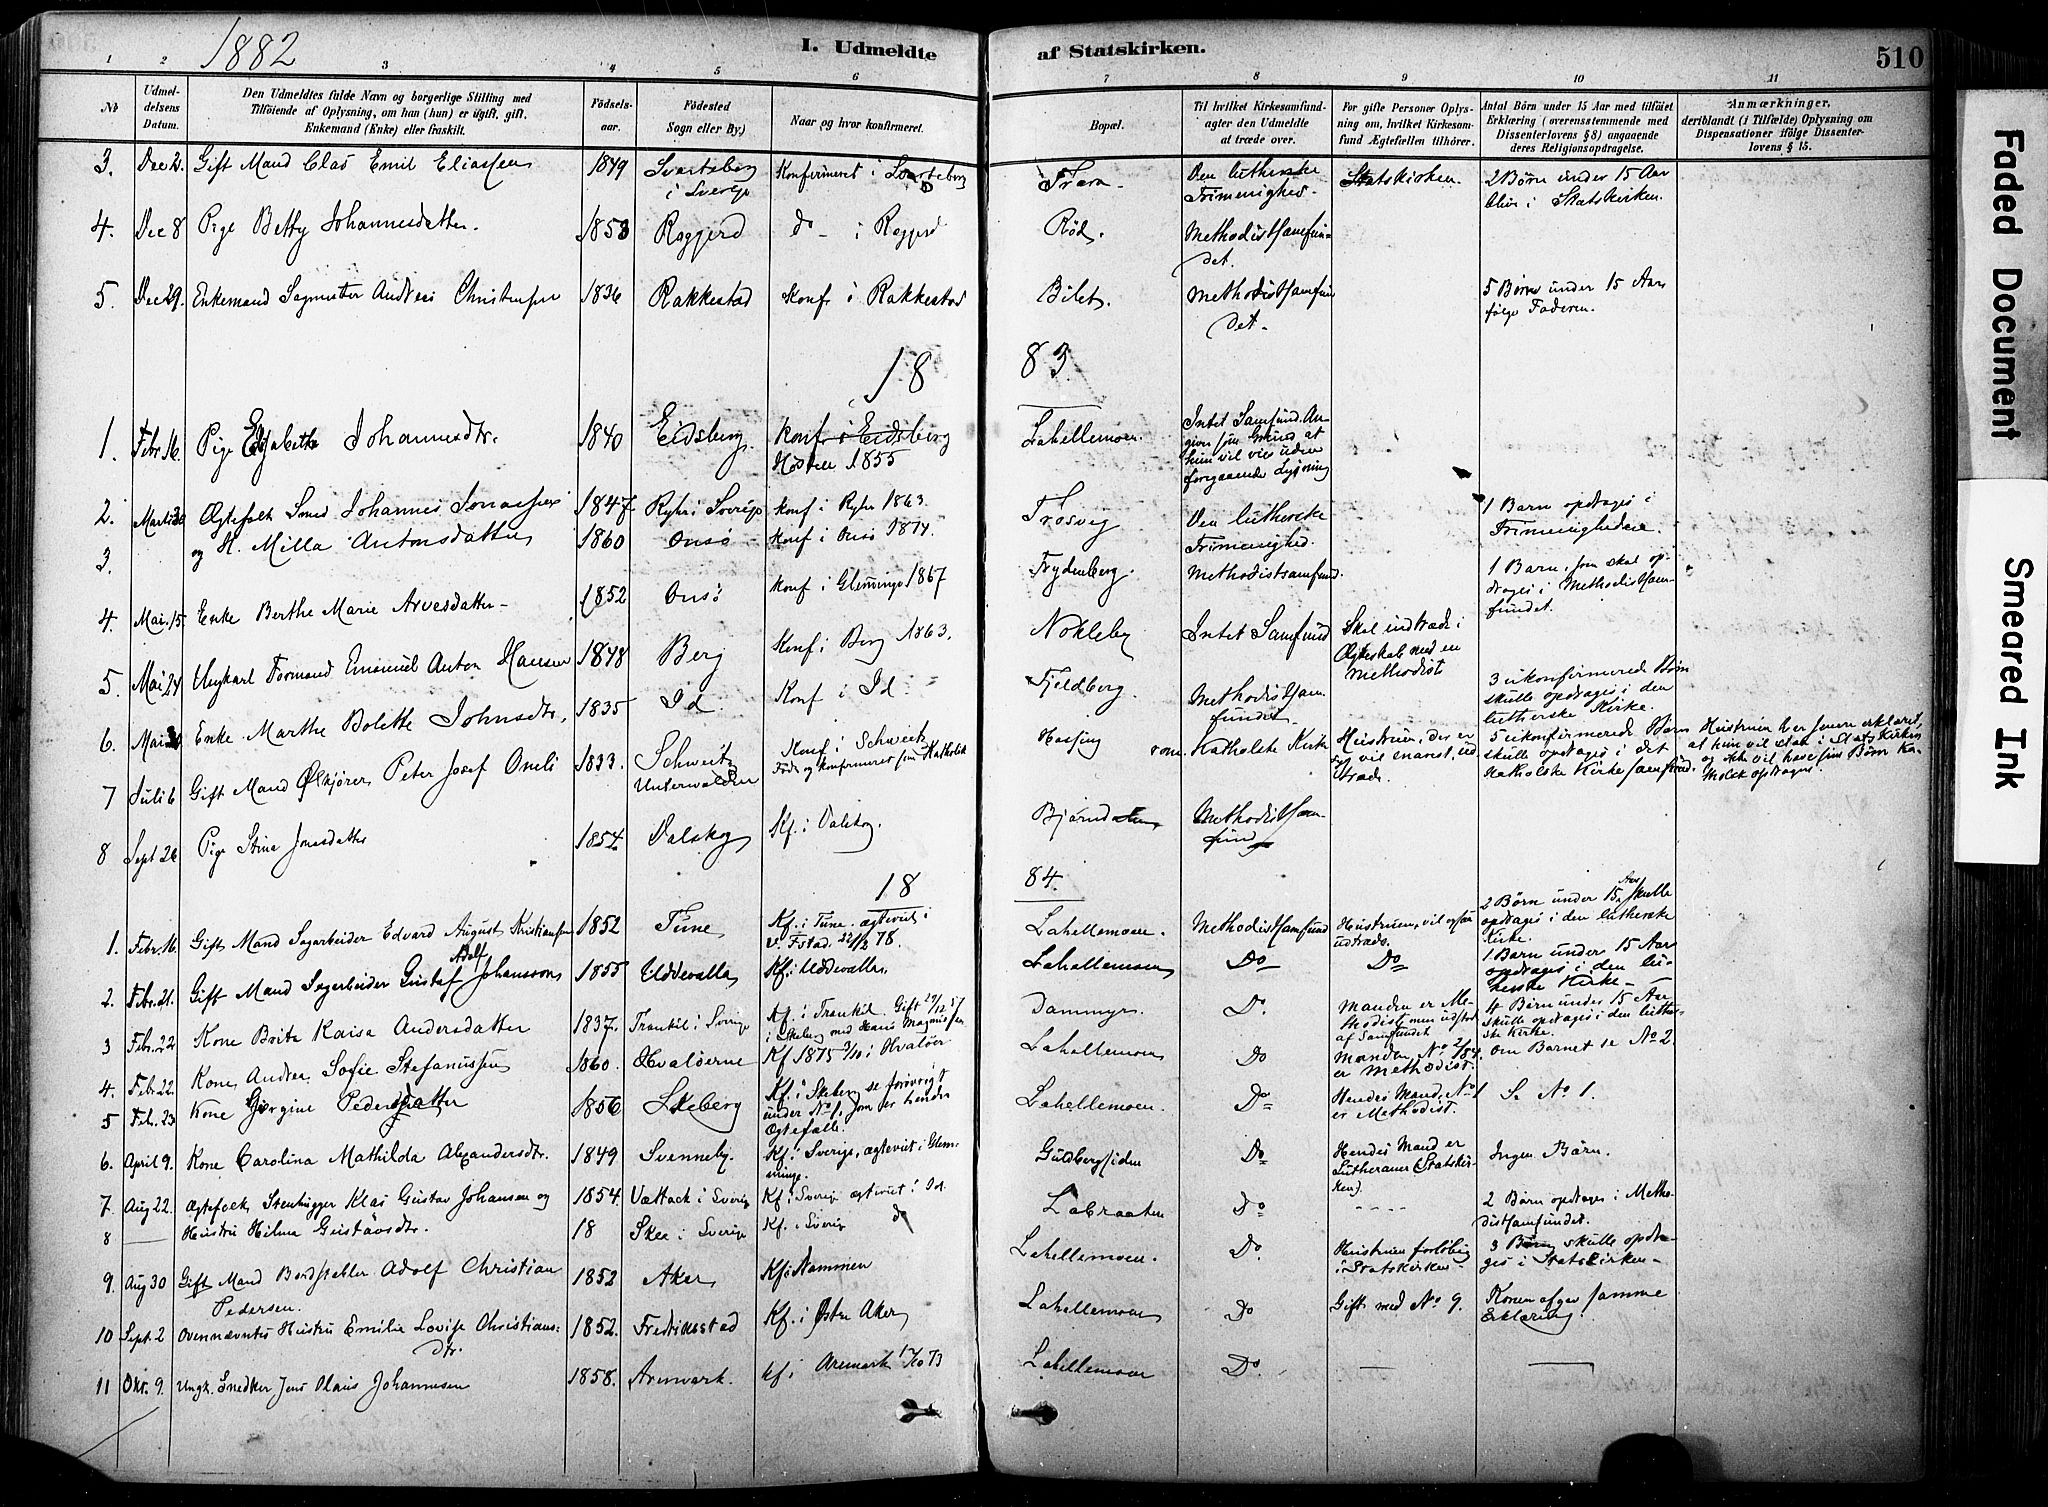 1882
I. Udmeldte af Statskirken.
510
1 2 3 4 5 6 7 8 9 10 11
No
Udmeldelsens Datum.
Den Udmeldtes fulde Navn og borgerlige Stilling med
Tilføiende af Oplysning, om han (hun) er ugift, gift,
Enkemand (Enke) eller fraskilt.
Fødselsaar.
Fødested
(Sogn eller By.)
Naar og hvor konfirmeret.
Bopæl.
Til hvilket Kirkesamfund
agter den Udmeldte
at træde over.
For gifte Personer Oplys-
ning om, hvilket Kirkesam-
fund Ægtefællen tilhører.
Antal Børn under 15 Aar med tilføiet
Erklæring (overensstemmende med
Dissenterlovens § 8) angaaende
deres Religionsopdragelse.
Anmærkninger,
deriblandt (i Tilfælde) Oplysning om
Dispensationer ifølge Dissenter-
lovens § 15.
3. Dec 2. Gift Mand Clas Emil Eliassen 1849 Svarteborg i Sverige Konfirmeret i Svarteborg Den lutherske Frimenighed. Statskirken. 2 Børn under 15 Aar blir i Statskirken.
4. Dec 8 Pige Betty Johannesdatter. 1853 Roggerd do i Roggerd Rød. Methodistsamfundet.
5. Dec 29. Enkemand Sagmester Andreas Christensen 1836 Rakkestad Konf. i Rakkestad Bilet. Methodistsamfundet. 5 Børn under 15 Aar følge Faderen.
18 83.
1. Febr. 16. Pige Elisabeth Johannesdtr. 1840 Eidsberg Konf. i Eidsberg Høsten 1855 Lahellemoen. Intet Samfund. Angiver sin Grund at hun vil vies uden foregaaende Lysning
2. Marts 30 Ægtefolk Smed Johannes Jonassen 1847 Ryr i Sverige Konf i Ryr 1863. Trosvig Den lutherske Frimenighed. 1 Barn opdrages i Frimenigheden.
3. og H. Milla Antonsdatter 1860 Onsø Konf i Onsø 1874.
4. Mai. 15 Enke Berthe Marie Arvesdatter 1852 Onsø Konf i Glemminge 1867 Frydenberg. Methodistsamfund. 1 Barn, som skal opdrages i Methodistsamfundet.
5. Mai 24 Ungkarl Formand Emanuel Anton Hansen 1848 Berg Konf. i Berg 1863. Nokleby Intet Samfund Skal indtræde i Ægteskab med en Methodist
6. Mai Enke Marthe Bolette Johnsdtr. 1835 Id. Konf i Id. Fjeldberg. Methodistsamfundet. 3 ukonfirmered Børn skulle opdrages i den lutherske Kirke.
7 Juli 6 Gift Mand Ølkjører Peter Josef Oneli 1833. Schweitz Unterwalden Konf. i Schweitz Født og konfirmeret som Katholik Hassing rom. Katholske Kirke Hustruen, der er vil snarest udtræde. 5 ukonfirmerede Børn skulle opdrages i det Katholske Kirkesamfund. Hustruen har senere erklæret, at hun vil staa i Statskirken og ikke vil have sine Børn Katholsk opdragne.
8 Sept 26 Pige Stina Jonasdatter 1854. Valskog Kf. i Valskog. Bjørndalen Methodistsamfund
18 84.
1. Febr. 16. Gift Mand Sagarbeider Edvard August Kristiansen 1852 Tune Kf. i Tune. ægteviet i V. Fstad. 22/2 78. Lahellemoen. Methodistsamfund Hustruen, vil ogsaa udtræde. 2 Børn under 15 Aar skulle opdrages i den lutherske Kirke.
2. Febr. 21. Gift Mand Sagarbeider Gustaf Adolf Johansson 1855 Uddevalla Kf. i Uddevalla Lahellemoen Do Do 1 Barn under 15 Aar opdrages i den lutherske Kirke
3 Febr. 22 Kone Brita Kaisa Andersdatter 1837. Trankil i Sverige Kf. i Trankil. Gift 29/12 57 i Skeberg med Hans Magnussen Dammyr. Do. Manden er Methodist men udstødt af Samfundet 4 Børn under 15 Aar skulle opdrages i den lutherske Kirke.
4. Febr. 22. Kone Andrea Sofie Stefanussen 1860. Hvaløerne Kf. 1875 3/10 i Hvaløer Lahellemoen Do Manden, No 2/84. er Methodist. Om Barnet se No 2.
5 Feb. 23 Kone Jørgine Pedersdatter 1856 Skeberg Kf. i Skeberg se forøvrigt under No 1, som er hendes Ægtefælle. Lahellemoen. Do Hendes Mand, No 1 er Methodist. Se No 1.
6. April 9. Kone Carolina Mathilda Alexandersdtr. 1849 Svenneby. Kf. i Sverige, ægteviet i Glemminge. Guldbergsiden Do Hendes Mand er Lutheraner (Statskirken). Ingen Børn.
7. Aug 22. Ægtefolk Stenhugger Klas Gustav Johansen og 1854. Vættack i Sverige Kf. i Sverige ægteviet i Id. Labraaten Do - - - - 2 Børn opdrages i Methodistsamfundet.
8 Hustru Hilma Gustavsdtr. 18 Skee i Sverige Kf. i Sverige do
9. Aug 30 Gift Mand Bordstabler Adolf Christian Pedersen. 1852 Aker Kf. i Nammen Lahellemoen. Do. Hustruen forløbig i Statskirken. 3 Børn skulle opdrages i Statskirken
10 Sept. 2 Ovennævntes Hustru Emilie Lovise Christiansdtr. 1852. Fredriksstad Kf. i Østre Aker Lahellemoen Do Gift med No 9. Konen afgav samme Erklæring.
11 Okt. 9. Ungk. Snedker Jens Olaus Johannesen 1858. Aremark. Kf. i Aremark 1/10 73 Lahellemoen Do
Faded Document
Smeared Ink